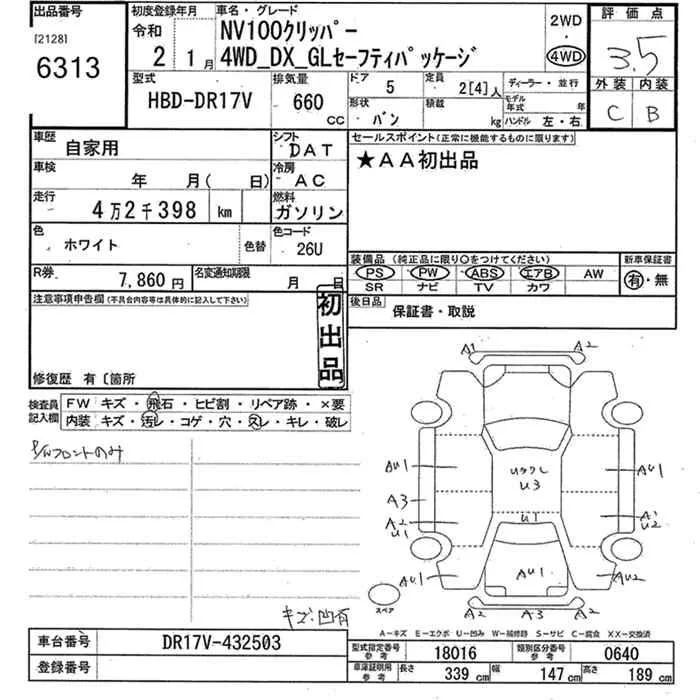 出品番号
[2128]
6313
初度登録年月
令和
2 1月
車名・グレード
NV100クリッパー
4WD_DX_GLセーフティパッケージ
2WD
・
4WD
評価点
3.5
外装 内装
C B
型式
HBD-DR17V
排気量
660
CC
ドア
5
定員
2[4]人
形状
バン
積載
kg
ディーラー・並行
モデル年式 年
ハンドル 左・右
車歴
自家用
シフト
DAT
車検
年 月( 日)
冷房
AC
走行
4万2千398 km
燃料
ガソリン
色
ホワイト
色替
色コード
26U
R券
7,860円
名変通知期限
月 日
セールスポイント(正常に機能するものに限ります)
★AA初出品
装備品(純正品に限り○をつけてください)
PS PW ABS エアB AW
SR ナビ TV カワ
新車保証書
有・無
後日品
保証書・取説
注意事項申告欄(不具合内容等は具体的に記入して下さい)
初出品
修復歴 有〔箇所
検査員記入欄
FW キズ・飛石・ヒビ割・リペア跡・×要
内装 キズ・汚レ・コゲ・穴・スレ・キレ・破レ
P/Wフロントのみ
キズ・凹有
A1 A2
AU1
A3
A2
U1
AU1
Uクワレ
U3
U1
AU1
AU1
A1
U2
AU2
A2 A3 A2
スペア
A−キズ E−エクボ U−凹み W−補修跡 S−サビ C−腐食 XX−交換済
車台番号
DR17V-432503
登録番号
型式指定番号
参考
18016
類別区分番号
参考
0640
車庫証明用
参考
長さ 339 cm 幅 147 cm 高さ 189 cm